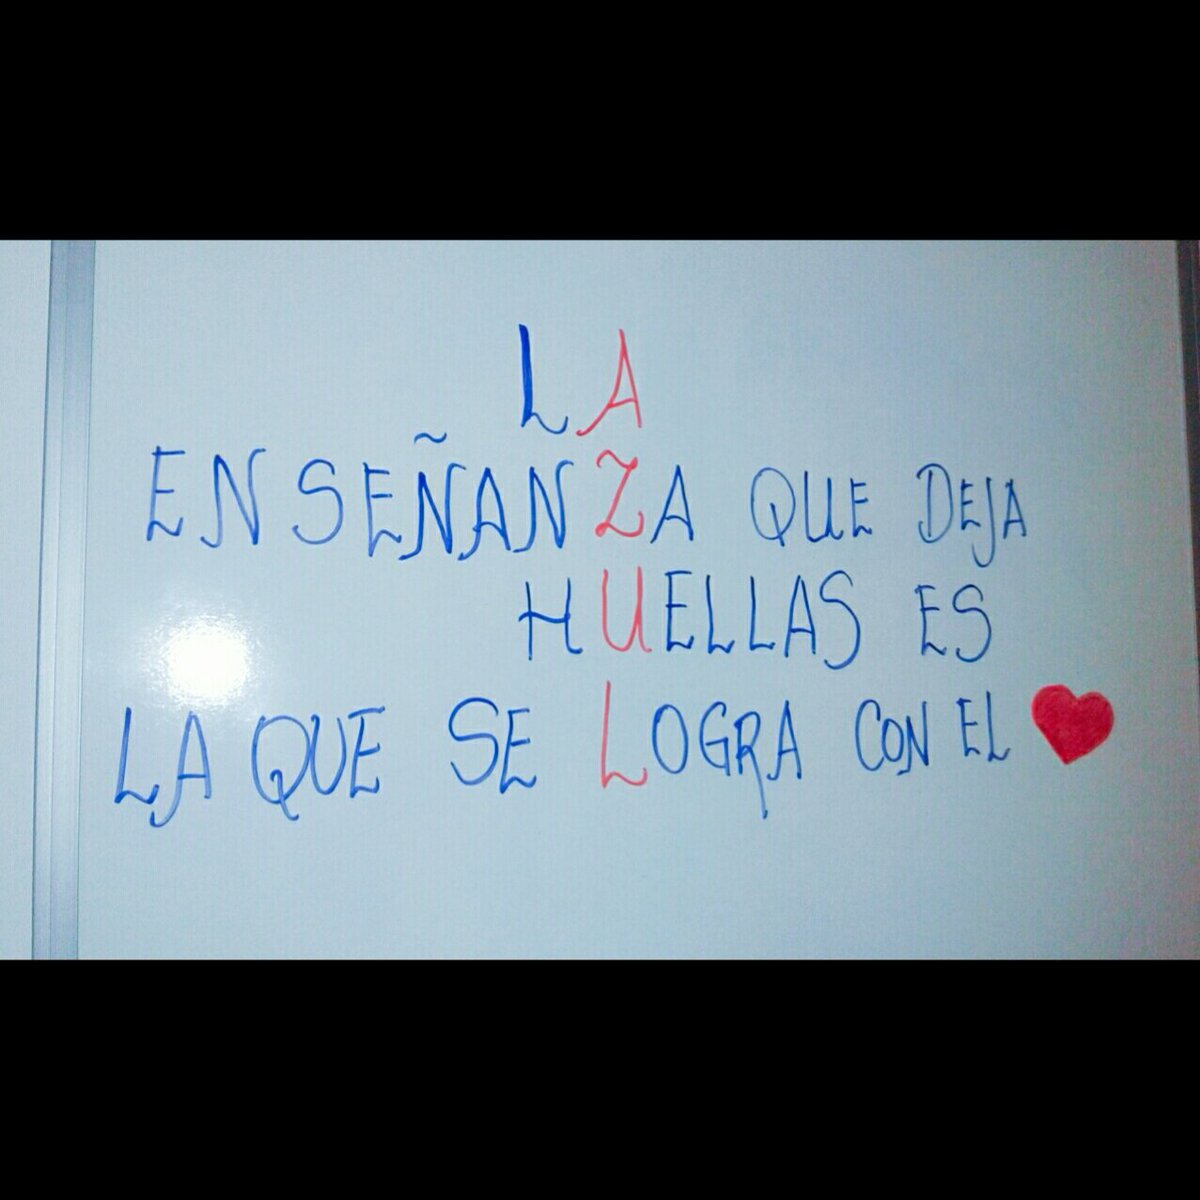 LA
ENSEÑANZA QUE DEJA
HUELLAS ES
LA QUE SE LOGRA CON EL